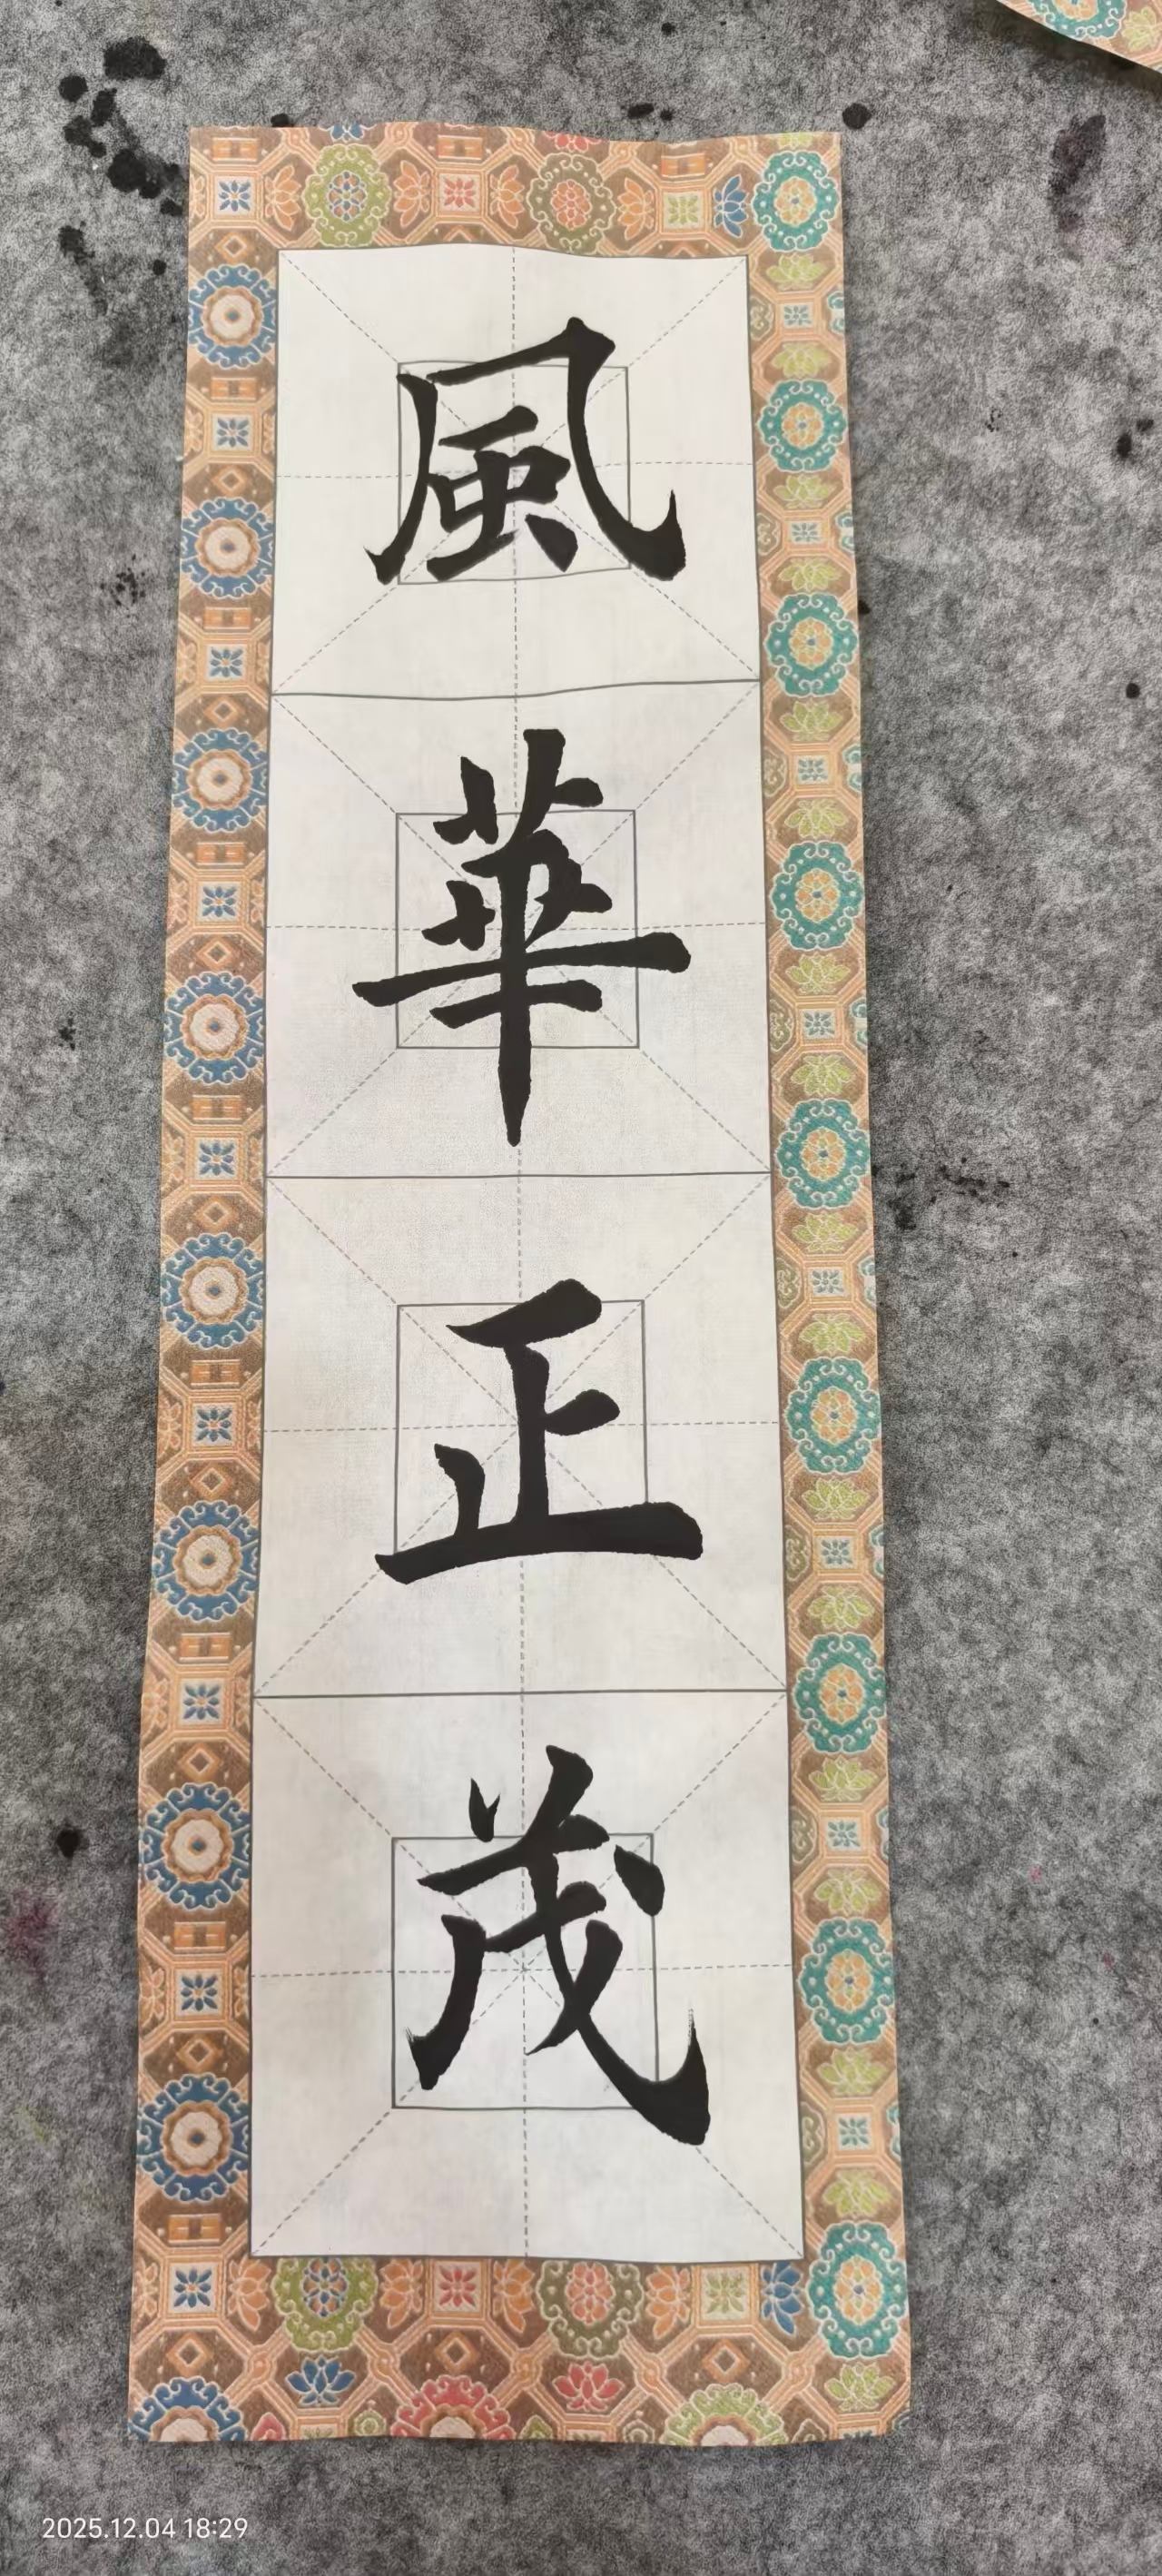 風華正茂
2025.12.04 18:29